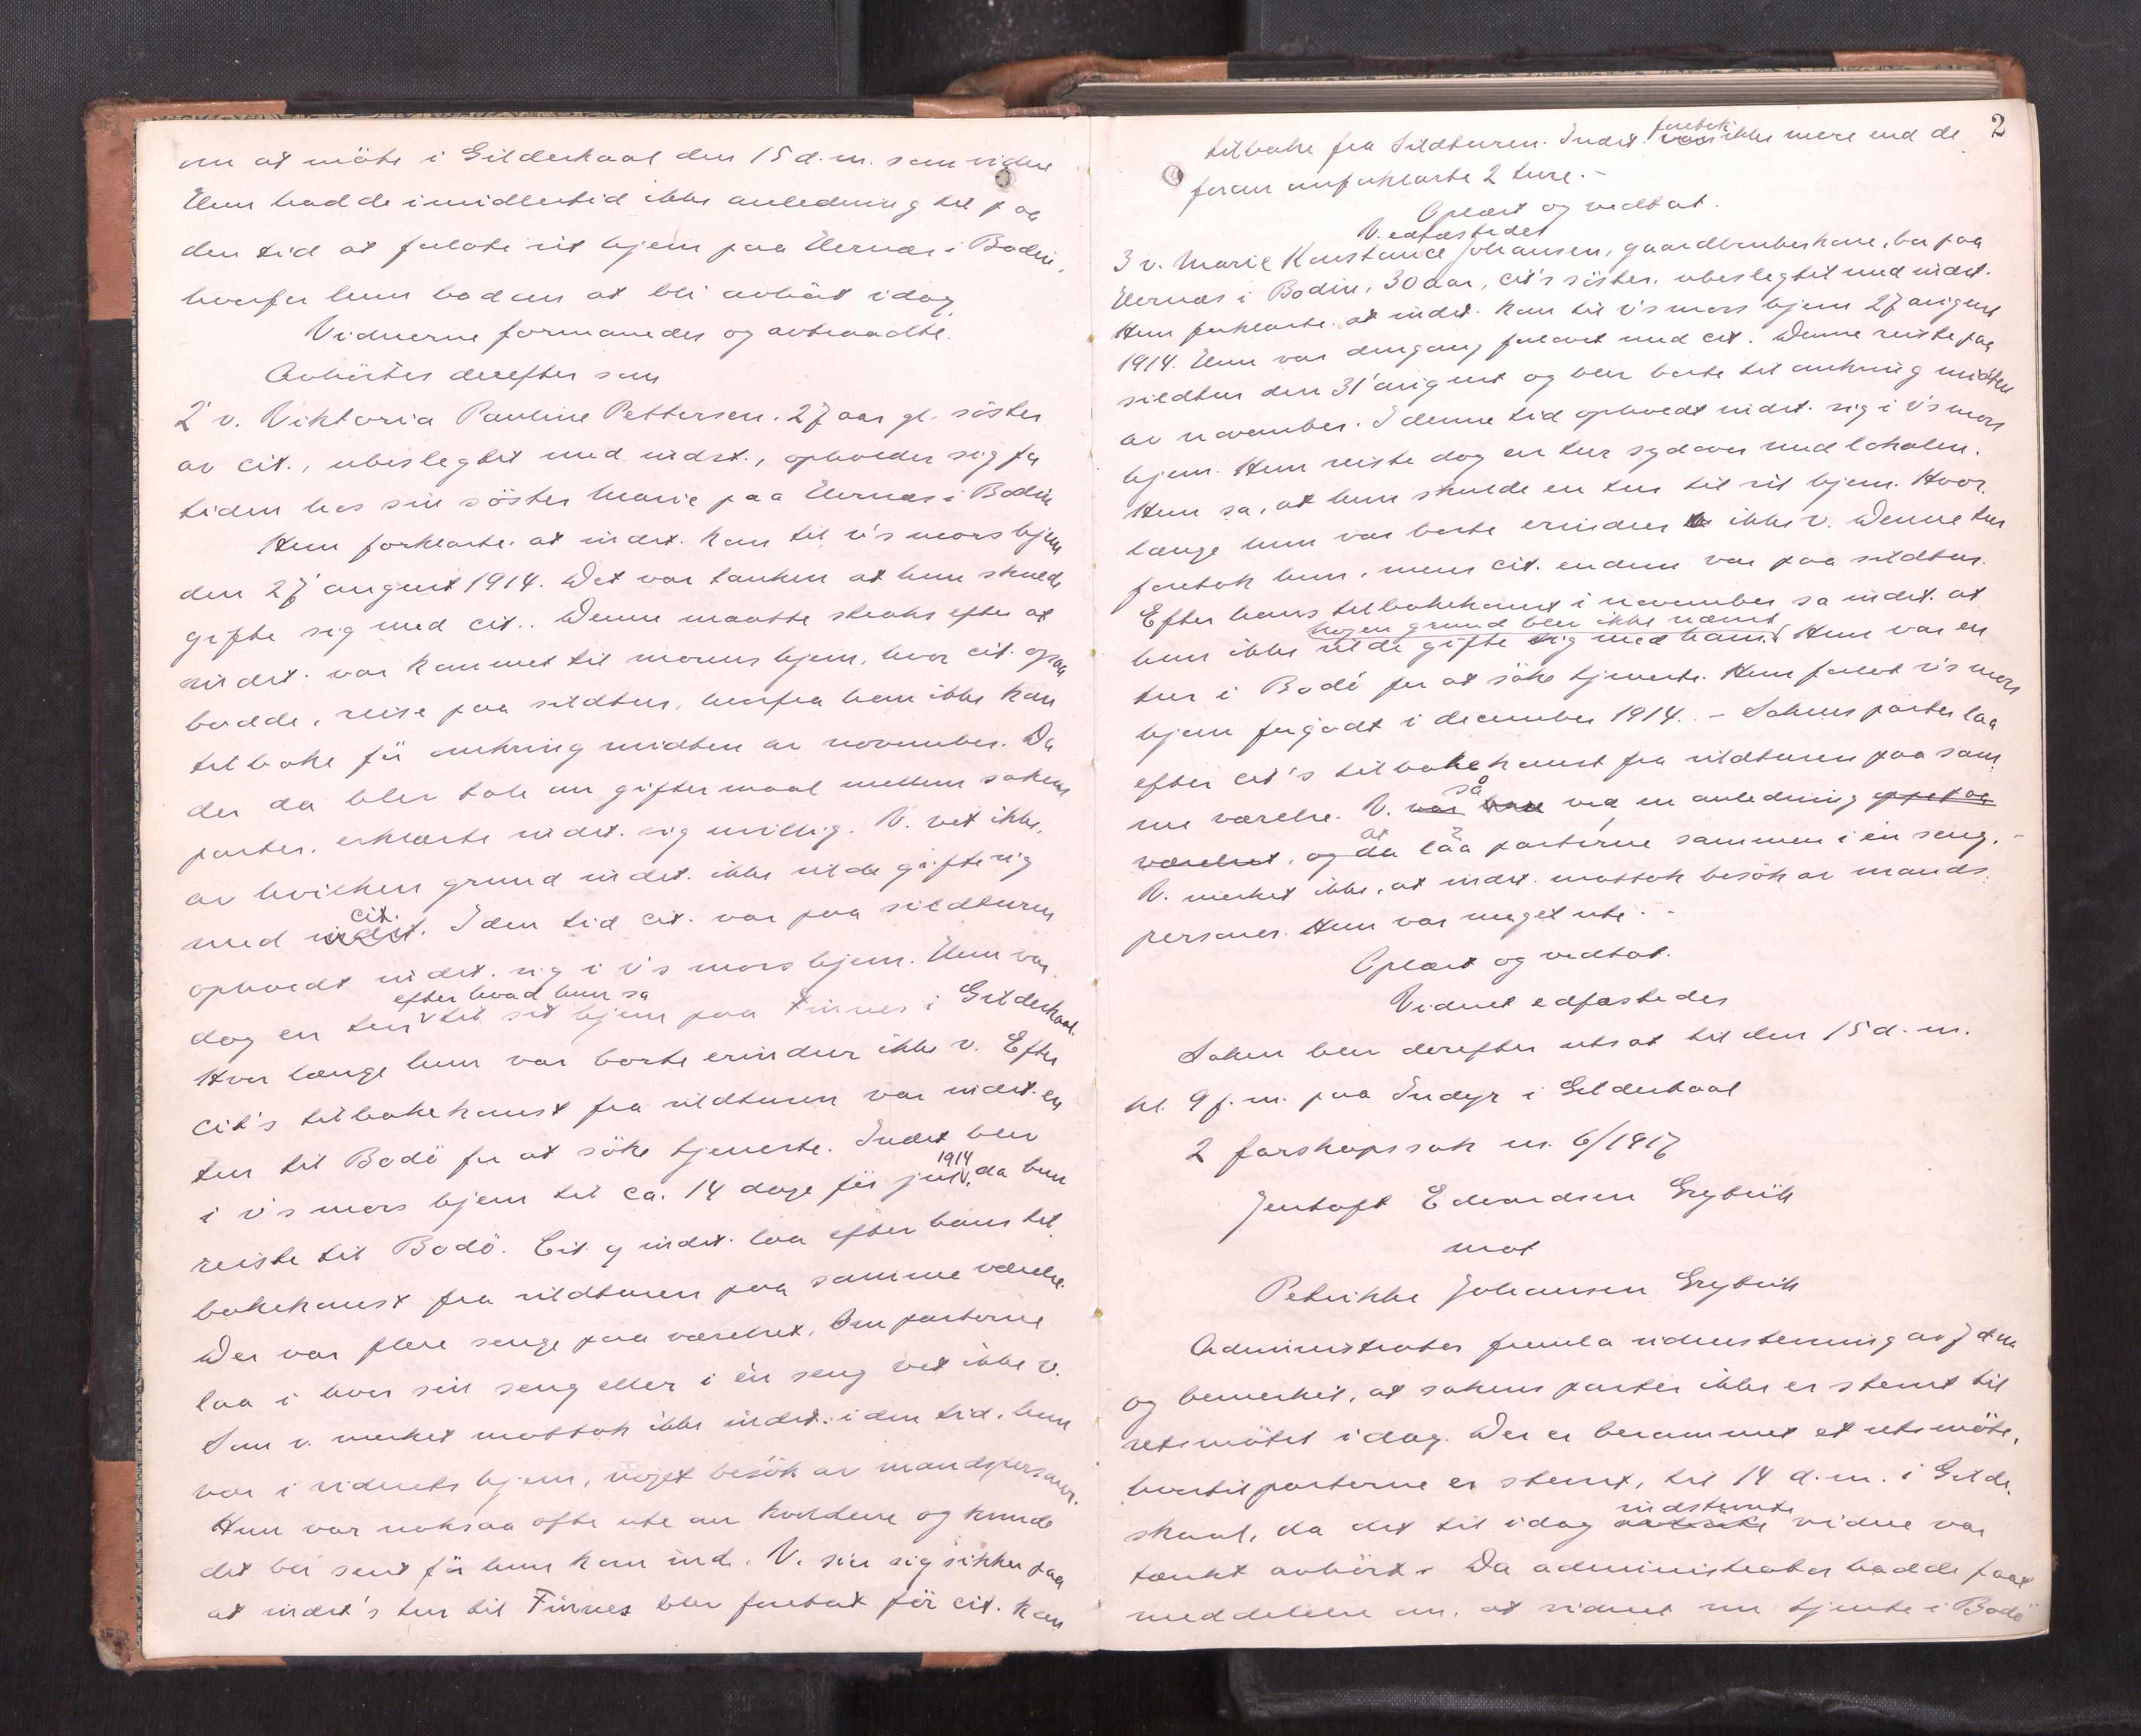 om at möte i Gildeskaal den 15 d.m. som vidne
Hun hadde imidlertid ikke anledning til paa
den tid at forlate sit hjem paa Hernæs i Bodin,
hvorfor hun bad om at bli avhört idag.
Vidnerne formanedes og avtraadte.
Avhörtes derefter som
2' v. Viktoria Pauline Pettersen. 27 aar gl. söster
av cit., ubeslegtet med indst., opholder sig for
tiden hos sin söster Marie paa Hernæs i Bodin
Hun forklarte, at indst. kom til v's mors hjem
den 27' august 1914. Det var tanken at hun skulde
gifte sig med cit.. Denne maatte straks efter at
indst. var kommet til morens hjem, hvor cit. ogsaa
bodde, reise paa sildtur, hvorfra han ikke kom
tilbake för omkring midten av november. Da
der da blev tale om giftermaal mellem sakens
parter, erklærte indst. sig uvillig. V. vet ikke,
av hvilken grund indst. ikke vilde gifte sig
cit.
med indst. I den tid cit. var paa sildturen
opholdt indst. sig i v's mors hjem. Hun var
efter hvad hun sa
dog en tur til sit hjem paa Finnes i Gildeskaal.
Hvor længe hun var borte erindrer ikke v. Efter
cit's tilbakekomst fra sildturen var indst. en
tur til Bodö for at söke tjeneste. Indst. blev
1914
i v's mors hjem til ca. 14 dage för jul, da hun
reiste til Bodö. Cit. og indst. laa efter hans til
bakekomst fra sildturen paa samme værelse.
Der var flere senge paa værelset. Om parterne
laa i hver sin seng eller i én seng vet ikke v.
Som v. merket mottok ikke indst. i den tid, hun
var i vidnets hjem, noget besök av mandspersoner.
Hun var noksaa ofte ute om kveldene og kunde
det bli sent för hun kom ind. V. sier sig sikker paa
at indst's tur til Finnes blev foretat för cit. kom
2
foretok
tilbake fra sildturen. Indst. var ikke mere end de
foran omforklarte 2 ture. -
Oplæst og vedtat.
V. edfæstedes
3 v. Marie Konstance Johansen, gaardbrukerkone, bor paa
Hernæs i Bodin, 30 aar, cit's söster, ubeslegtet med indst.
Hun forklarte, at indst. kom til v's mors hjem 27 august
1914. Hun var dengang forlovet med cit. Denne reiste paa
sildtur den 31' august og blev borte til omkring midten
av november. I denne tid opholdt indst. sig i v's mors
hjem. Hun reiste dog en tur sydover med lokalen.
Hun sa, at hun skulde en tur til sit hjem. Hvor
længe hun var borte erindrer ikke v. Denne tur
foretok hun, mens cit. endnu var paa sildtur.
Efter hans tilbakekomst i november sa indst. at
nogen grund blev ikke nævnt
hun ikke vilde gifte sig med ham. Hun var en
tur i Bodö for at söke tjeneste. Hun forlot v's mors
hjem for godt i december 1914. - Sakens parter laa
efter cit's tilbakekomst fra sildturen paa sam
så
me værelse. V. var ved en anledning oppe paa
at
værelset, og da laa parterne sammen i én seng. -
V. merket ikke, at indst. mottok besök av mands
personer. Hun var meget ute. -
Oplæst og vedtat.
Vidnet edfæstedes
Saken blev derefter utsat til den 15 d.m.
kl. 9 f.m. paa Indyr i Gildeskaal
2 farskapssak nr. 6/1917
Jentoft Edvardsen
mot
Petrikke Johansen
Administrator fremla vidnestevning av 7 d.m
og bemerket, at sakens parter ikke er stevnt til
retsmötet idag. Der er berammet et retsmöte,
hvortil parterne er stevnt, til 14 d.m. i Gilde
indstevnte
skaal, da det til idag vidne var
tænkt avhört. Da administrator hadde faat
meddelelse om, at vidnet nu tjente i Bodö